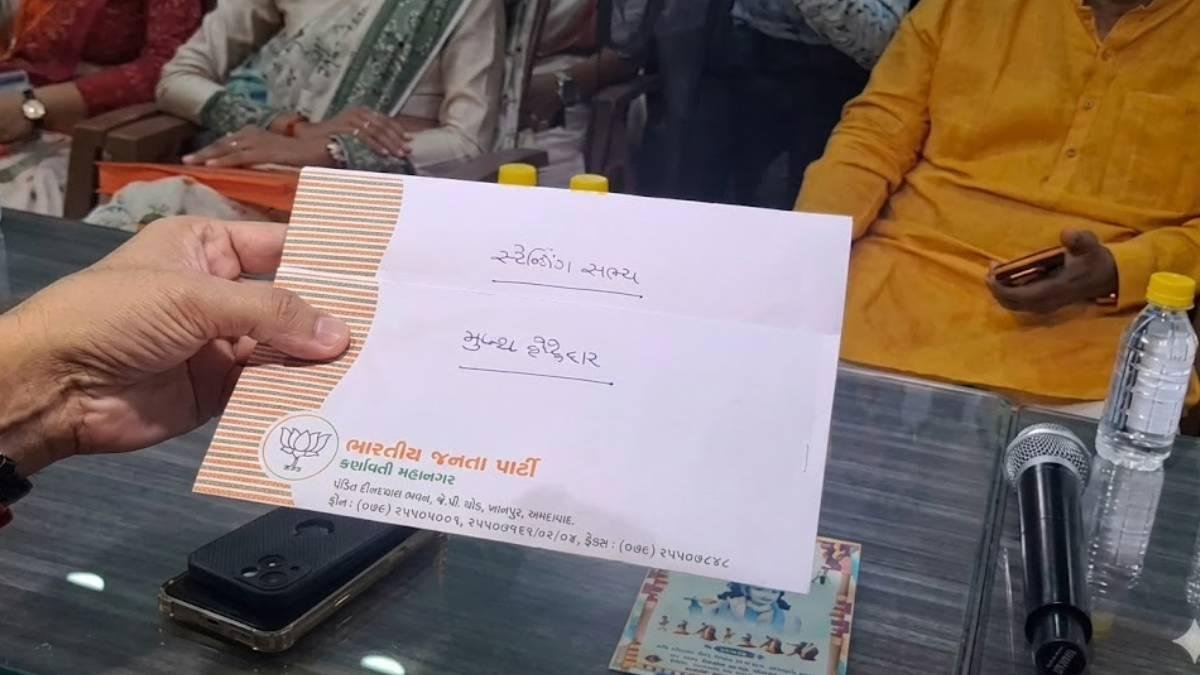 સ્ટેન્ડિંગ સભ્ય
મુખ્ય હોદ્દેદાર
ભારતીય જનતા પાર્ટી
કર્ણાવતી મહાનગર
પંડિત દીનદયાલ ભવન, જે.પી. ચોક, ખાનપુર, અમદાવાદ.
ફોન : (૦૭૯) ૨૫૫૦૫૦૦૧, ૨૫૫૦૭૧૬૧/૦૨/૦૪, ફેક્સ : (૦૭૯) ૨૫૫૦૭૮૪૮